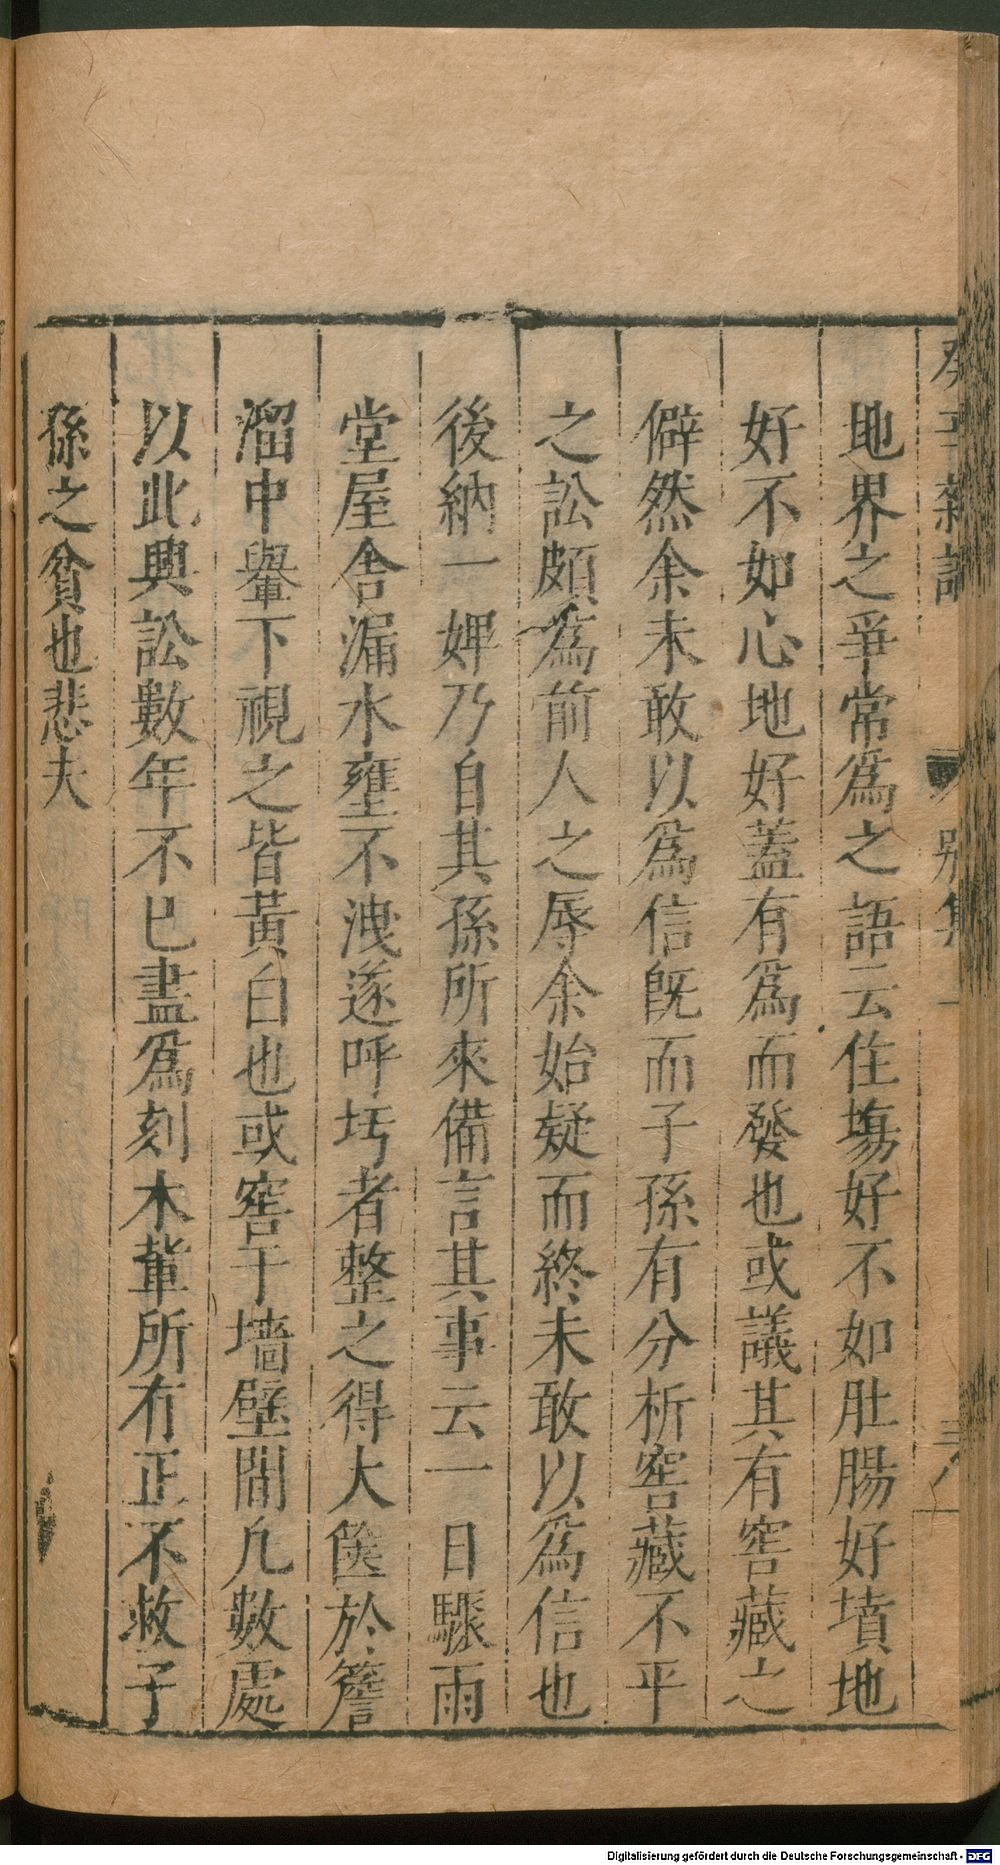 癸辛雜識 別集 三八
地界之爭常爲之語云住塲好不如肚腸好墳地
好不如心地好蓋有爲而發也或議其有窖藏之
僻然余未敢以爲信旣而子孫有分析窖藏不平
之訟頗爲前人之辱余始疑而終未敢以爲信也
後納一婢乃自其孫所來備言其事云一日驟雨
堂屋舎漏水壅不洩遂呼圬者整之得大篋於簷
溜中轝下視之皆黃白也或窖于墻壁間凡數處
以此興訟數年不已盡爲刻木輩所有正不救子
孫之貧也悲夫
Digitalisierung gefördert durch die Deutsche Forschungsgemeinschaft - DFG